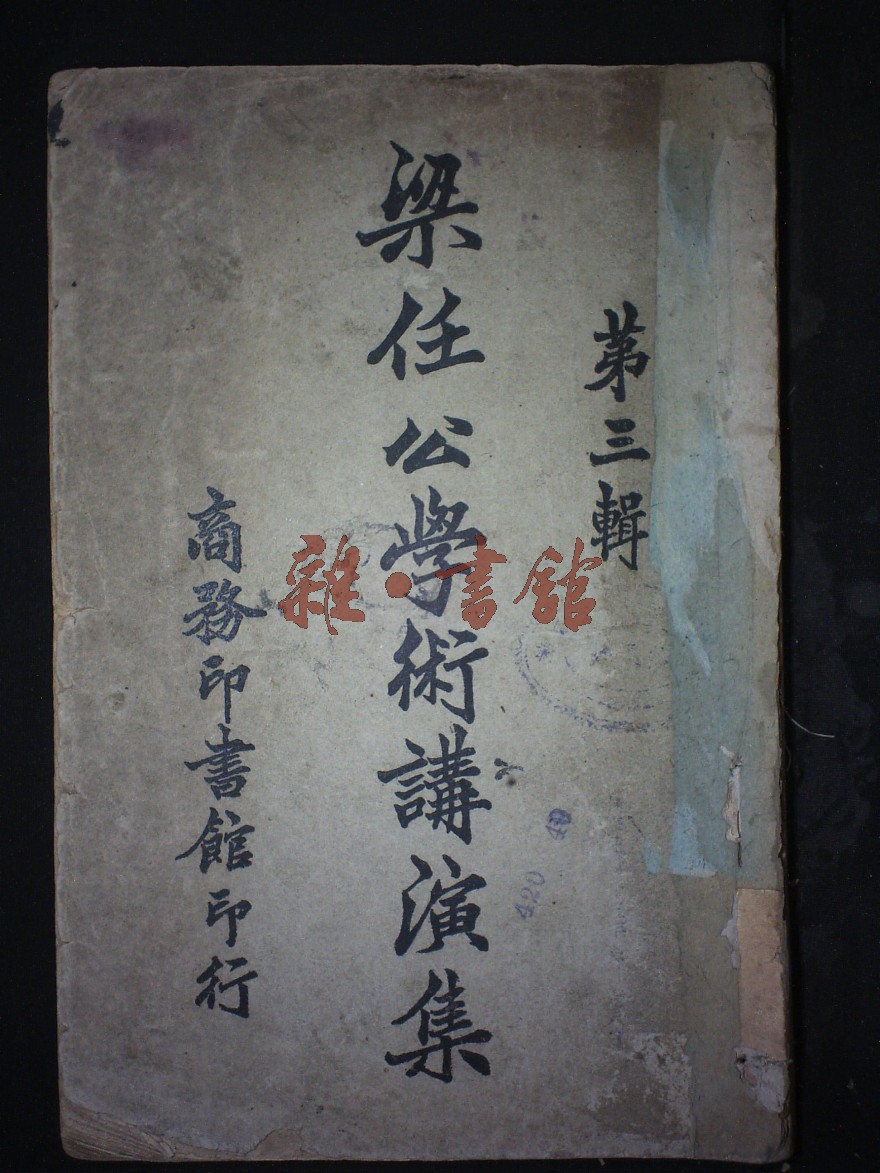 第三輯
梁任公學術講演集
商務印書館印行
雜·書館
420